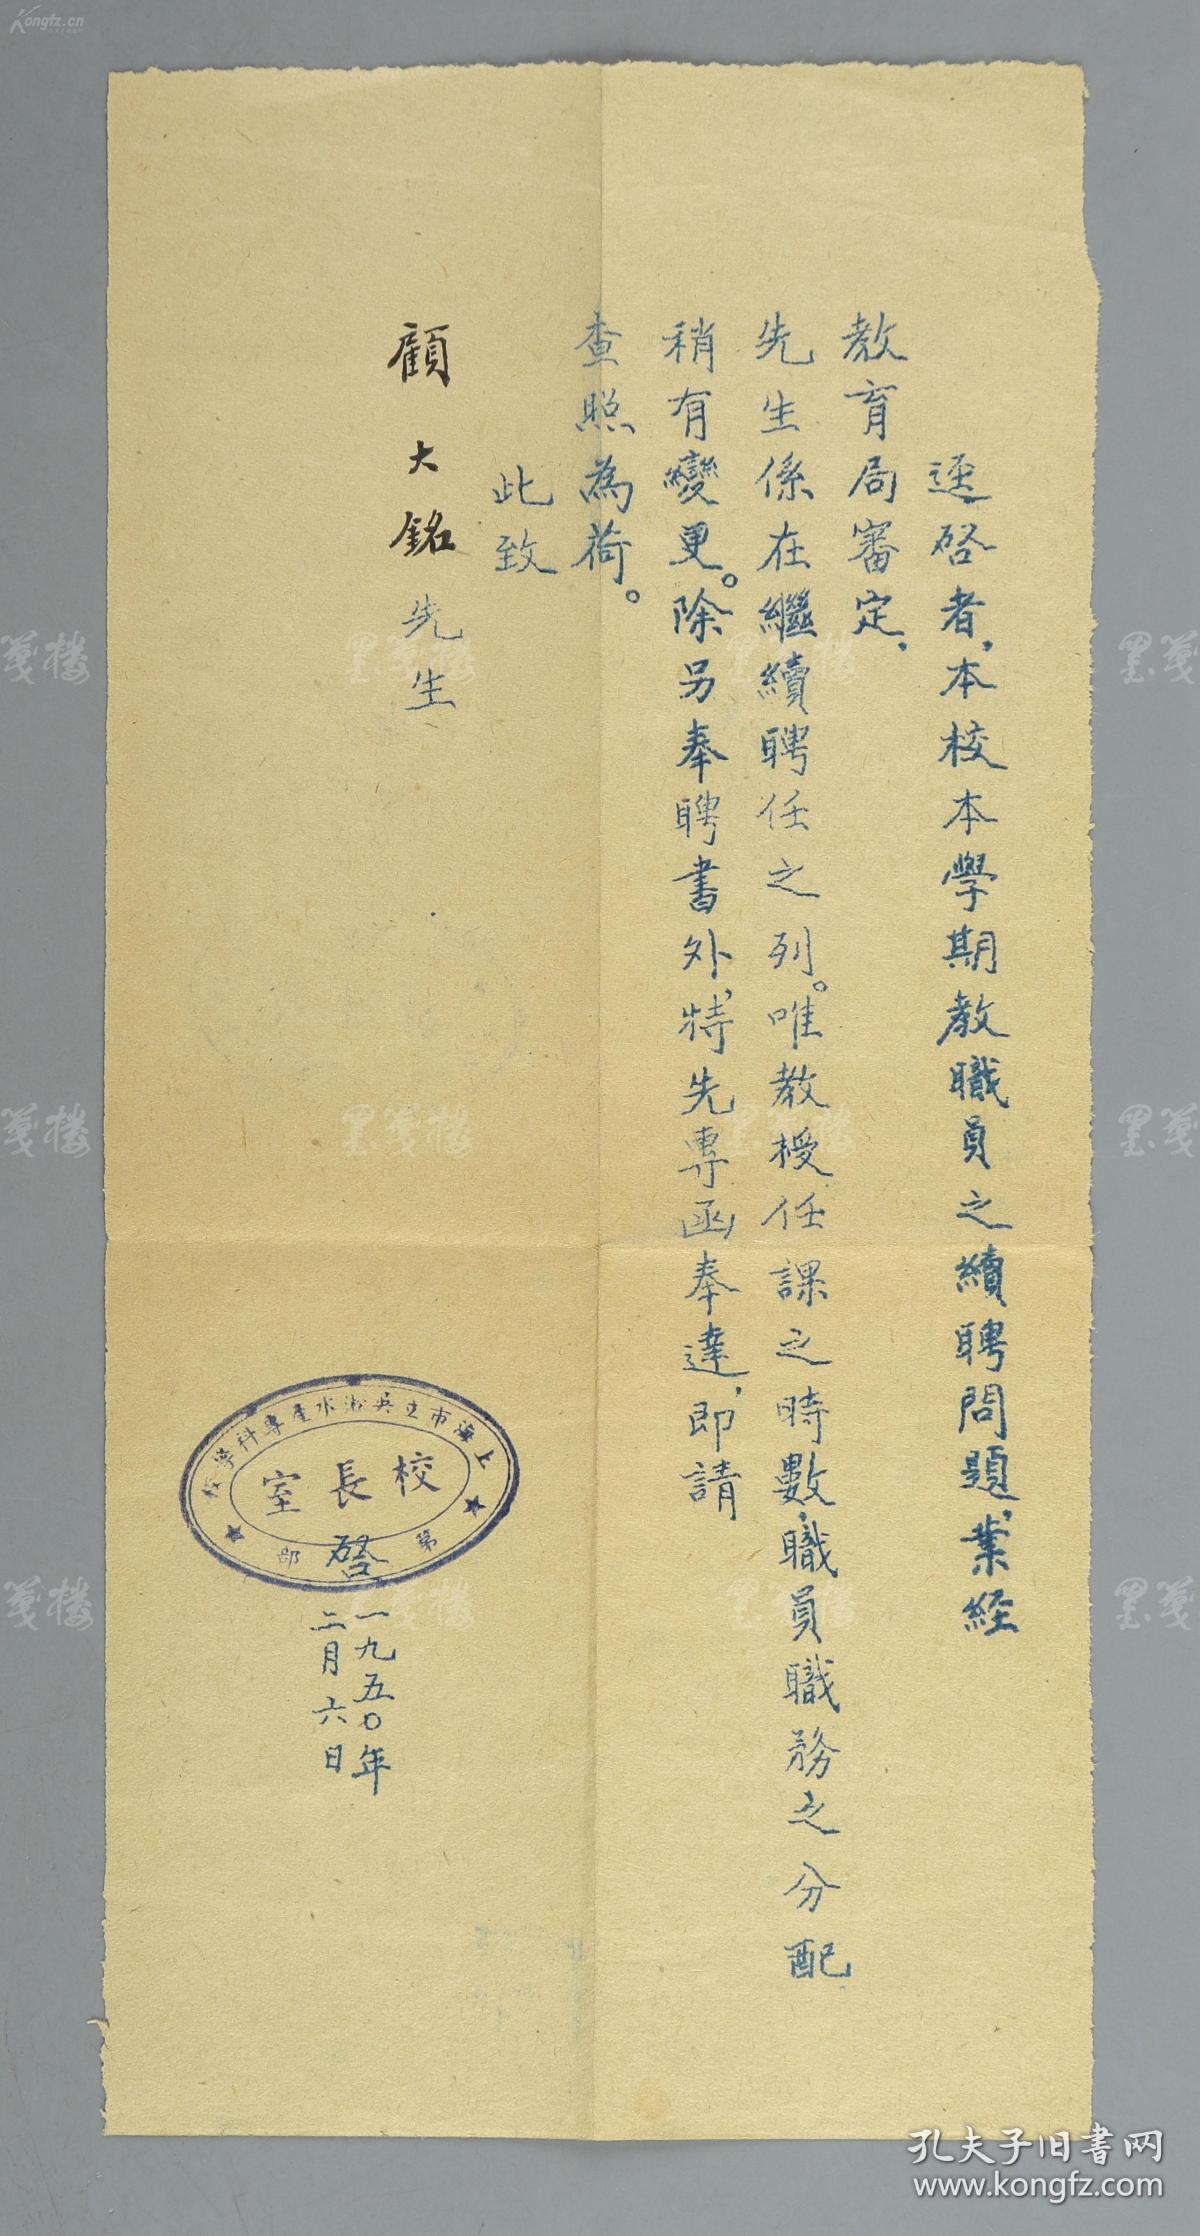 迳启者，本校本學期教職員之續聘問題，業经
教育局審定，
先生係在繼續聘任之列。唯教授任課之時數，職員職務之分配
稍有變更。除另奉聘書外，特先專函奉達，即請
查照為荷。
此致
顧大銘先生
上海市立吳淞水產專科學校
校長室
第 部
啓
一九五〇年
二月六日
孔夫子旧书网
www.kongfz.com
Kongfz.cn
墨笺楼